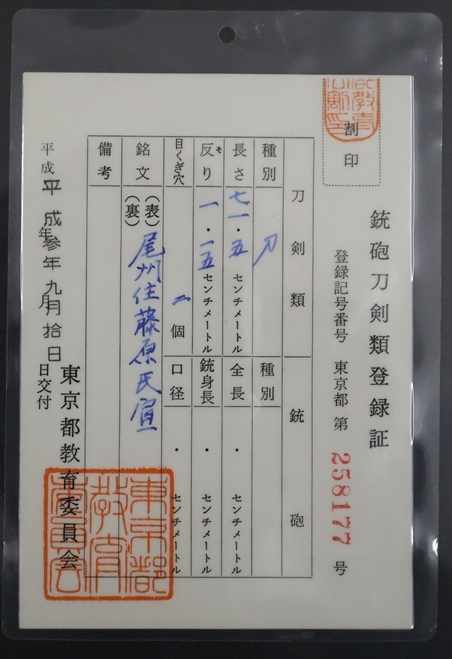 銃砲刀剣類登録証
登録記号番号 東京都 第 258177 号
割印
刀剣類
銃砲
種別 刀
種別
長さ 七一・五センチメートル
全長 ・ センチメートル
反り 一・一五センチメートル
そ
銃身長 ・ センチメートル
目くぎ穴 個
口径 ・ センチメートル
銘文 (表) 尾州住藤原氏宣
(裏)
備考
平成 平成参年 九月 拾日
年 月 日交付
東京都教育委員会
東京都
教育